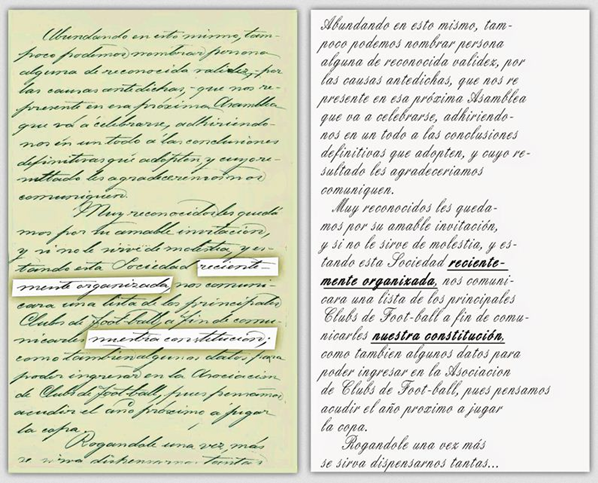 Abundando en esto mismo, tam-
poco podemos nombrar persona
alguna de reconocida validez, por
las causas antedichas, que nos re-
presente en esa próxima Asamblea
que vá a celebrarse, adhiriendo-
nos en un todo a las conclusiones
definitivas que adopten, y cuyo re-
sultado les agradeceriamos
comuniquen.
Muy reconocidos les queda-
mos por su amable invitación,
y si no le sirve de molestia, y es-
tando esta Sociedad reciente-
mente organizada, nos comuni-
cara una lista de los principales
Clubs de Foot-ball a fin de comu-
nicarles nuestra constitución,
como tambien algunos datos, para
poder ingresar en la Asociacion
de Clubs de Foot-ball, pues pensamos
acudir el año próximo a jugar
la copa.
Rogandole una vez más
se sirva dispensarnos tantas
Abundando en esto mismo, tam-
poco podemos nombrar persona
alguna de reconocida validez, por
las causas antedichas, que nos re
presente en esa próxima Asamblea
que va a celebrarse, adhiriendo-
nos en un todo a las conclusiones
definitivas que adopten, y cuyo re-
sultado les agradeceriamos
comuniquen.
Muy reconocidos les queda-
mos por su amable invitación,
y si no le sirve de molestia, y es-
tando esta Sociedad reciente-
mente organizada, nos comuni-
cara una lista de los principales
Clubs de Foot-ball a fin de comu-
nicarles nuestra constitución,
como tambien algunos datos para
poder ingresar en la Asociacion
de Clubs de Foot-ball, pues pensamos
acudir el año proximo a jugar
la copa.
Rogandole una vez más
se sirva dispensarnos tantas...